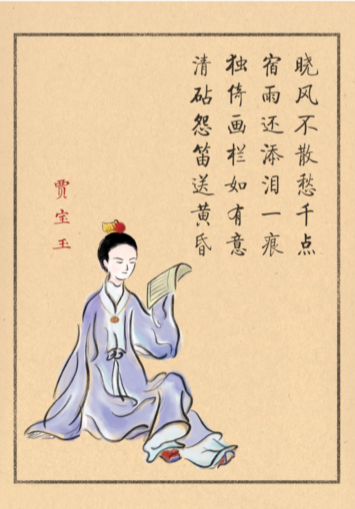 晓风不散愁千点
宿雨还添泪一痕
独倚画栏如有意
清砧怨笛送黄昏
贾宝玉